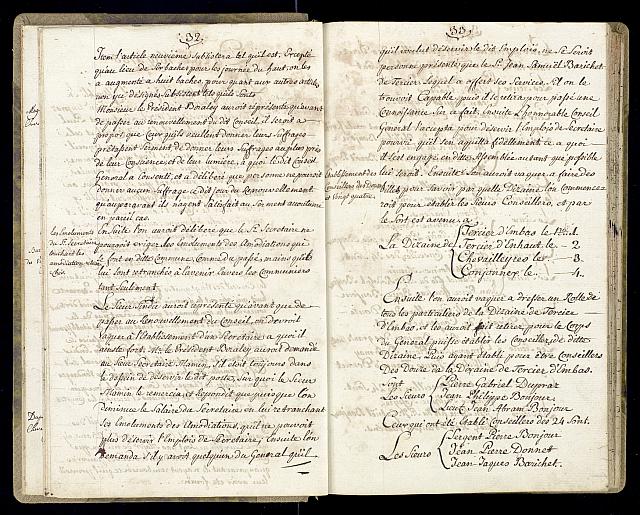 32.
Item l'article neuvieme subsistera tel qu'il est. Excepté
qu'au lieu de Six baches pour les journée du haut, on les
a augmenté a huit baches, pour quant aux autres articles
non ÿ designés subsistent tels qu'ils sont.
Monsieur le Président Braley auroit représenté qu'avant
de passer au renouvellement du dit Conseil, il seroit a
propos que Ceux qui veulent donner leurs Suffrages
prétassent Serment de donner leurs Suffrages au plus près
de leur Conscience et de leur lumiere, à quoi le dit Conseil
General a Consenti, et a déliberé que personne ne pouvoit
donner aucun Suffrage ce dit jour du Renouvellement
qu'auparavant ils n'ayent Satisfait au Serment accoutumé
en pareil cas.
les Emoluments
du Sr. Secretaire
touchant les
Ensuite l'on auroit déliberé que le Sr. Secretaire ne
pouvoit exiger les Emoluments des Amodiations qui
se font en ditte Commune, comme du passé, mais qu'ils
lui sont retranchés à l'avenir envers les Communiers
tant seulement.
Le Sieur Sindic auroit représenté qu'avant que de
passer au Renouvellement du Conseil, on devroit
vaquer à l'Etablissement d'un Secretaire a quoi il
ainste fort. Mr. le Président Braley auroit demandé
au Sieur Secretaire Mamin, s'il étoit toujours dans
le dessein de désservir le dit poste, Sur quoi le Sieur
Mamin le remercia, et répondit que puisque l'on
diminue le Salaire du Secretaire, en lui retranchant
Ses Emoluments des Amodiations, qu'il ne pouvoit
plus déservir l'Emplois de Secretaire, Ensuite l'on
demanda s'il y avoit quelqu'un du General qu'il
33.
qu'il voulut déservir le dit Emplois, ne Se Seroit
personne présenté, que le Sr. Jean Samüel Barichet
de Tercier, lequel a offert ses Services, Et on le
trouvoit Capable, puis il se retira pour passé une
Connoissance. Sur ce fait, ensuite L'honnorable Conseil
General l'accepta pour déservir l'Emplois de Secretaire
pourvû qu'il s'en aquitta fidellement ce a quoi
il s'est engagé, en ditte Assemblée autant que possible
lui seroit. Ensuite l'on auroit vaquer a faire des
Billets pour Savoir par quelle Dizaine l'on Commence-
roit pour établir les Sieurs Conseillers, et par
le Sort est avenu a
Etablissement des
Conseillers
vingt quatre.
La Dizaine de
Tercier d'Enbas le No. 1.
Tercier d'Enhaut le — 2
Chevalleyres le — 3.
Conjonnex le — 4.
Ensuite l'on auroit vaquer a dresser un Rolle de
tous les particuliers de la Dizaine de Tercier
d'Enbas, et les auroit fait retirer, pour le Corps
du General puisse établir les Conseillers de ditte
Dizaine. Puis ayant établi pour être Conseillers
Des Douze de la Dizaine de Tercier d'Enbas.
Sont
Les Sieurs
Pierre Gabriel Dupraz
Jean Philippe Bonjour
Leuc Jean Abram Bonjour
Ceux qui ont été établi Conseillers des 24 Sont.
Les Sieurs
Sergent Pierre Bonjour
Jean Pierre Donnet
Jean Jaques Barichet.